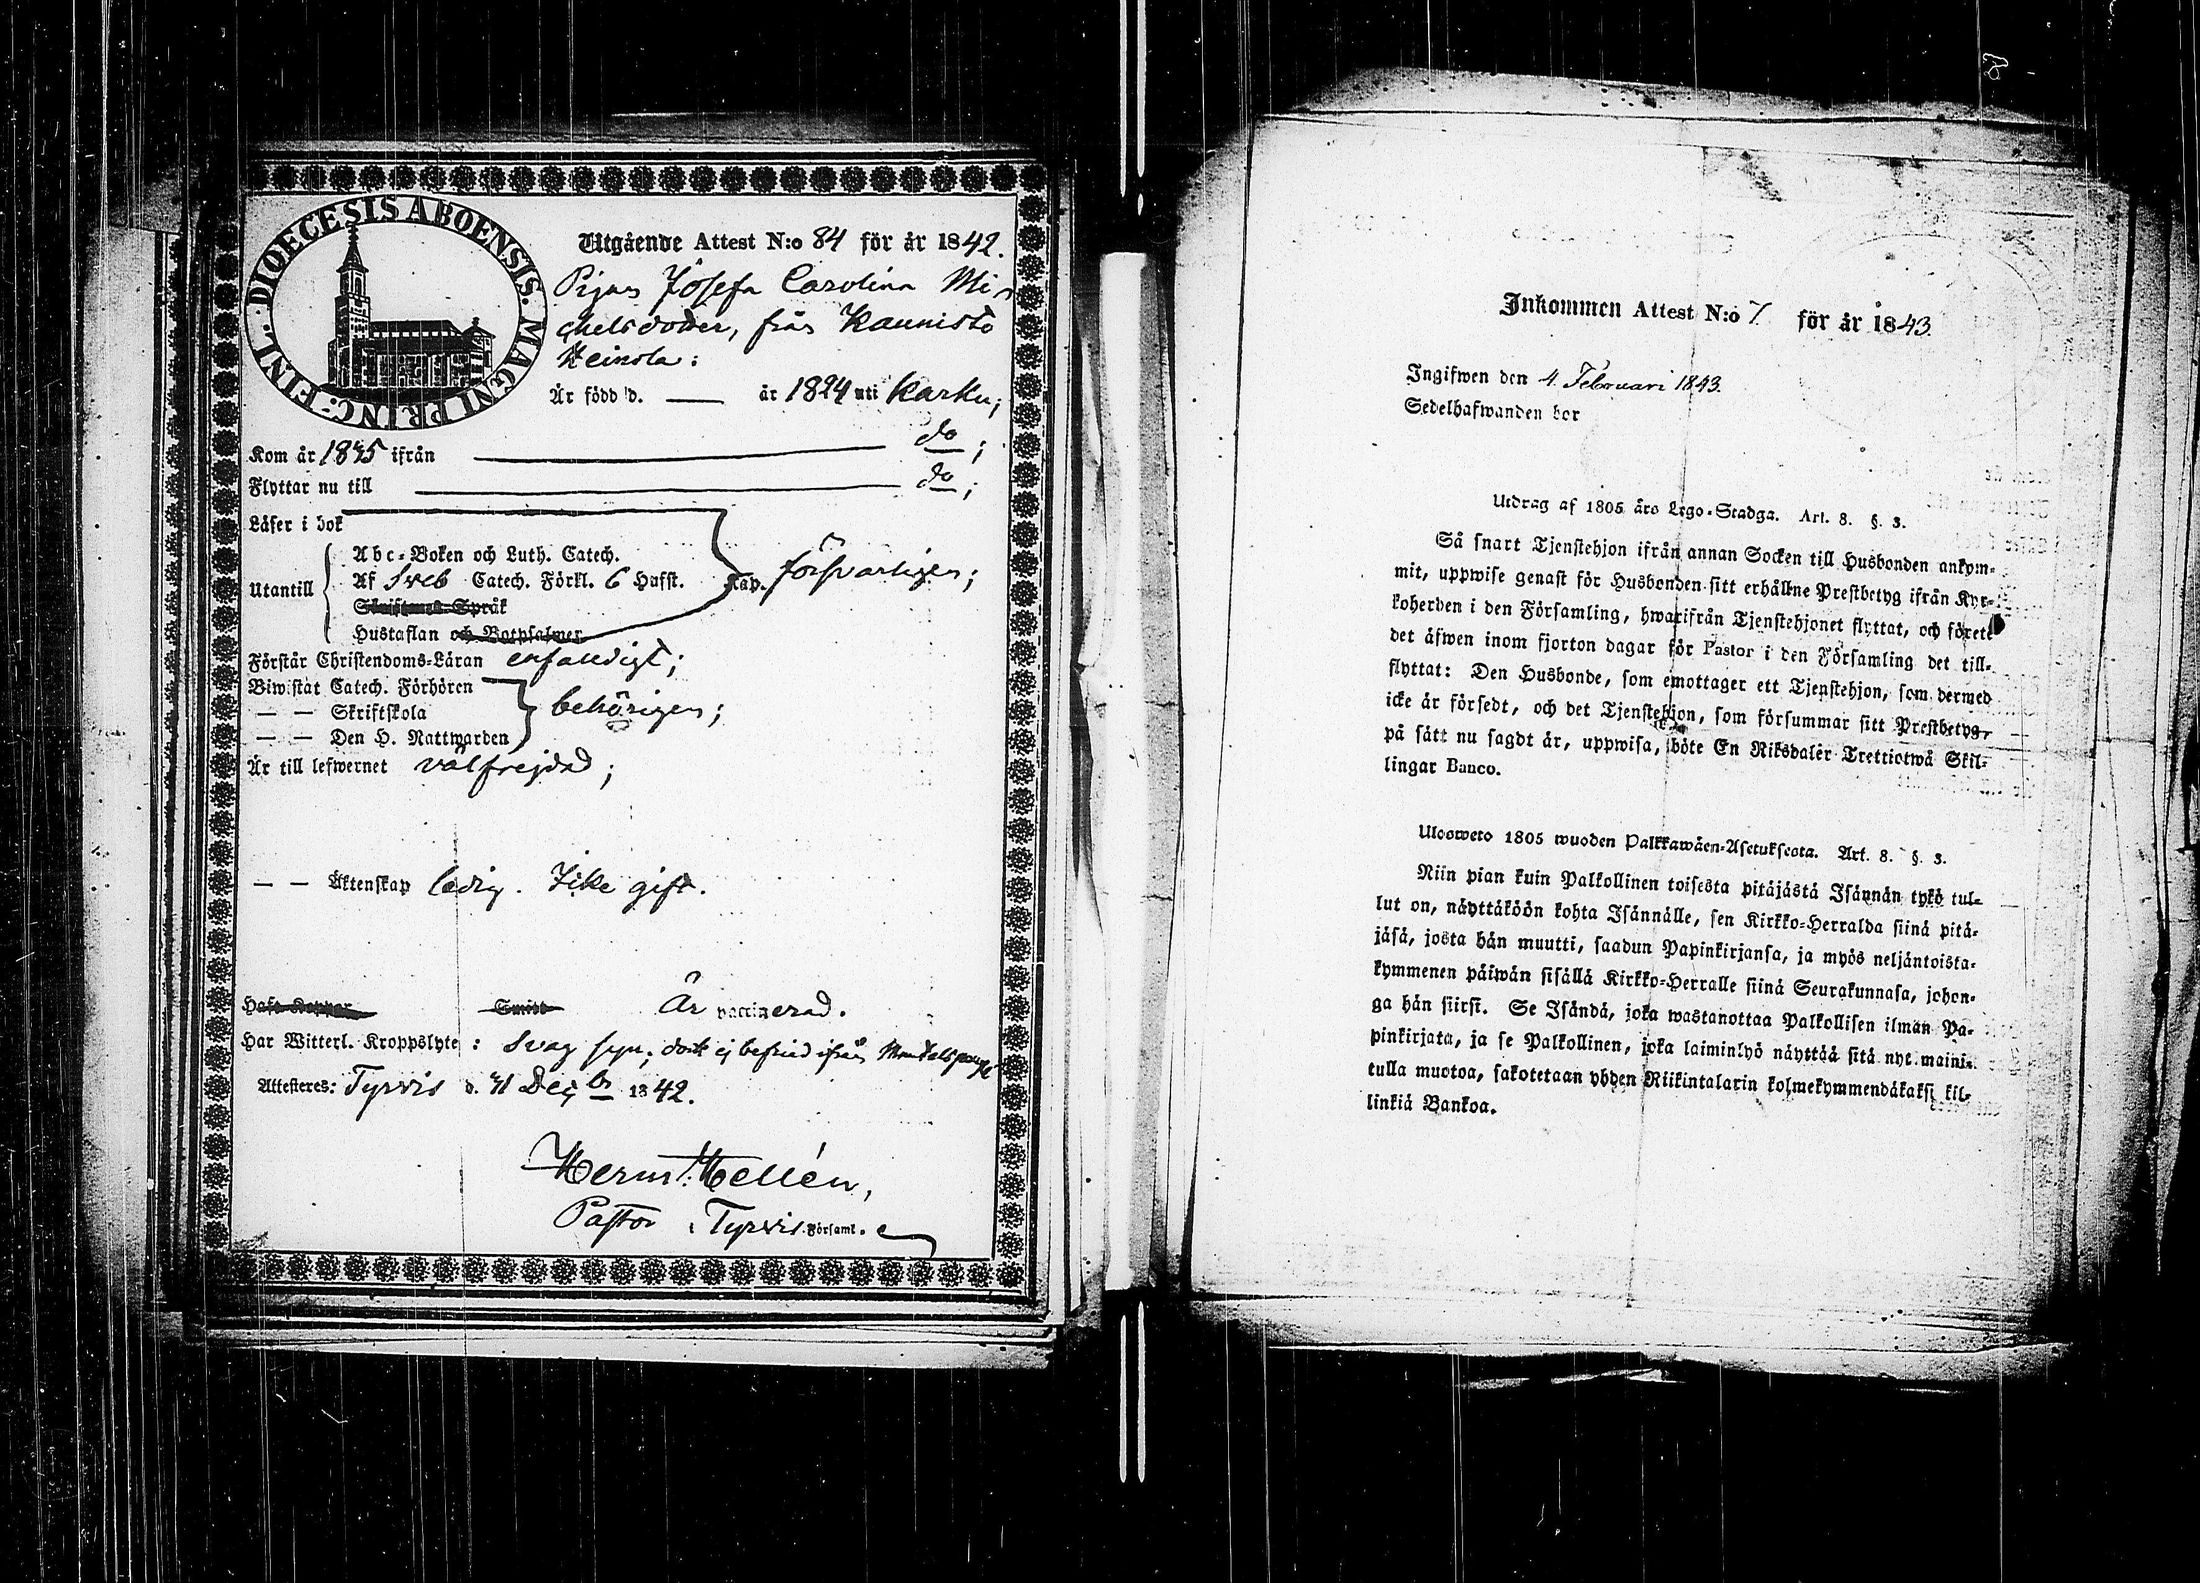 DIOECESIS ABOENSIS. MAGNI PRINC: FINL.
Utgående Attest N:o 84 för år 1842.
Pigan Josefa Carolina Mi-
chelsdotter, från Kaunisto
Heinola:
Är född d. — år 1824 uti Karku;
Kom år 1835 ifrån — do;
Flyttar nu till — do;
Läser i bok
Abc-Boken och Luth. Catech.
Utantill Af Sveb Catech. Förkl. 6 Hufst. försvarligen;
Skriftenes Språk
Hustaflan och Botpsalmer
Förstår Christendoms-Läran enfaldigt;
Biwistat Catech. Förhören
— — Skriftskola behörigen;
— — Den H. Nattwarden
Är till lefwernet välfrejdad;
— — Äktenskap ledig. Icke gift.
Haft Koppor Smitt Är vaccinerad.
Har Witterl. Kroppslyte: Svag syn; dock ej befriad ifrån
Attesteres: Tyrvis d. 31 Dec br 1842.
Herm. Hellén,
Pastor i Tyrvis Församl.
Inkommen Attest N:o 7 för år 1843
Ingifwen den 4 Februari 1843.
Sedelhafwanden bor
Utdrag af 1805 års Lego-Stadga. Art. 8. §. 3.
Så snart Tjenstehjon ifrån annan Socken till Husbonden ankom-
mit, uppwise genast för Husbonden sitt erhållne Prestbetyg ifrån Kyr-
koherden i den Församling, hwarifrån Tjenstehjonet flyttat, och förete
det äfwen inom fjorton dagar för Pastor i den Församling det till-
flyttat: Den Husbonde, som emottager ett Tjenstehjon, som dermed
icke är försedt, och det Tjenstehjon, som försummar sitt Prestbetyg,
på sätt nu sagdt är, uppwisa, böte En Riksdaler Trettiotwå Skil-
lingar Banco.
Ulosweto 1805 wuoden Palkkawäen-Asetuksesta. Art. 8. §. 3.
Niin pian kuin Palkollinen toisesta pitäjästä Isännän tykö tul-
lut on, näyttäköön kohta Isännälle, sen Kirkko-Herralda siinä pitä-
jäsä, josta hän muutti, saadun Papinkirjansa, ja myös neljäntoista-
kymmenen päiwän sisällä Kirkko-Herralle siinä Seurakunnasa, johon-
ga hän siirsi. Se Isändä, joka wastanottaa Palkollisen ilman Pa-
pinkirjata, ja se Palkollinen, joka laiminlyö näyttää sitä nyt maini-
tulla muotoa, sakotetaan yhden Riikintalarin kolmekymmendäkaksi kil-
linkiä Bankoa.